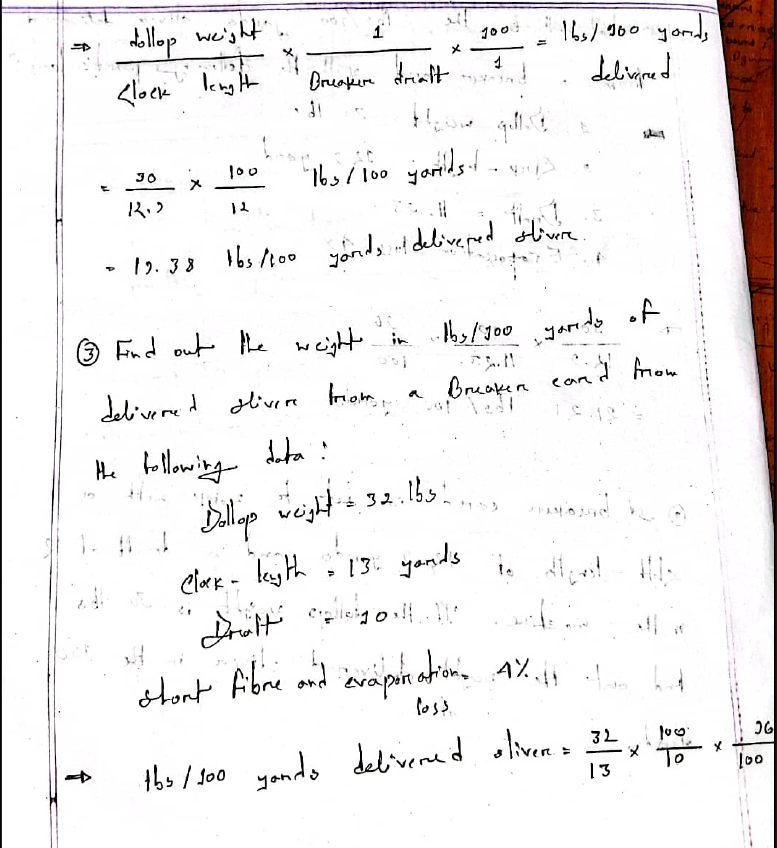 ⇒ dollop weight / Clock length × 1 / Breaker draft × 100 / 1 = lbs/100 yards delivered
= 30 / 12.9 × 100 / 12 lbs/100 yards
= 19.38 lbs/100 yards delivered sliver
③ Find out the weight in lbs/100 yards of
delivered sliver from a Breaker card from
the following data :
Dollop weight = 32 lbs
Clock-length = 13 yards
Draft = 10
short fibre and evaporation = 4%
loss
⇒ lbs/100 yards delivered sliver = 32 / 13 × 100 / 10 × 96 / 100